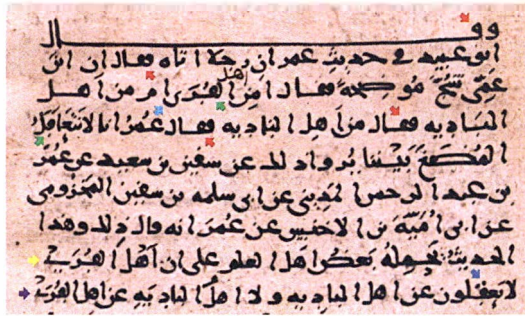 وقال
ابو عبيد في حديث عمر ان رجلا اتاه فقال ان ابن
عمى شج موضحة فقال امن اهل القرى ام من اهل
البادیه فقال من اهل البادیه فقال عمر انا لا نتعاقل
المضغ بيننا يروا ذلك عن سفين بن سعيد عن عمر
بن عبد الرحمن المديني عن ابي سلمه بن سفين المخزومى
عن ابي امية بن الاخنس عن عمر انه قال ذلك وهذا
الحديث يحمله بعض اهل العلم على ان اهل القرى
لا يعقلون عن اهل البادیه ولا اهل البادیه عن اهل القرى